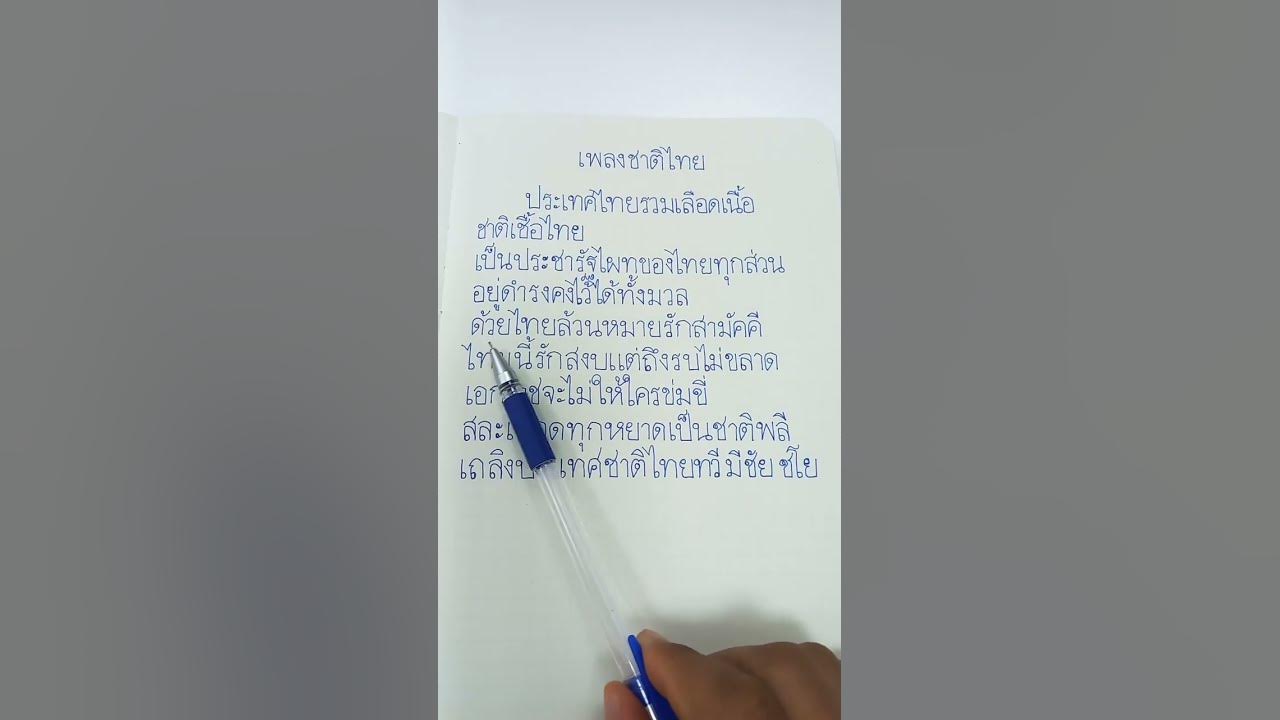 เพลงชาติไทย
ประเทศไทยรวมเลือดเนื้อ
ชาติเชื้อไทย
เป็นประชารัฐไผทของไทยทุกส่วน
อยู่ดำรงคงไว้ได้ทั้งมวล
ด้วยไทยล้วนหมายรักสามัคคี
ไทยนี้รักสงบแต่ถึงรบไม่ขลาด
จะไม่ให้ใครข่มขี่
สละเลือดทุกหยาดเป็นชาติพลี
เถลิงประเทศชาติไทยทวีมีชัย ชโย